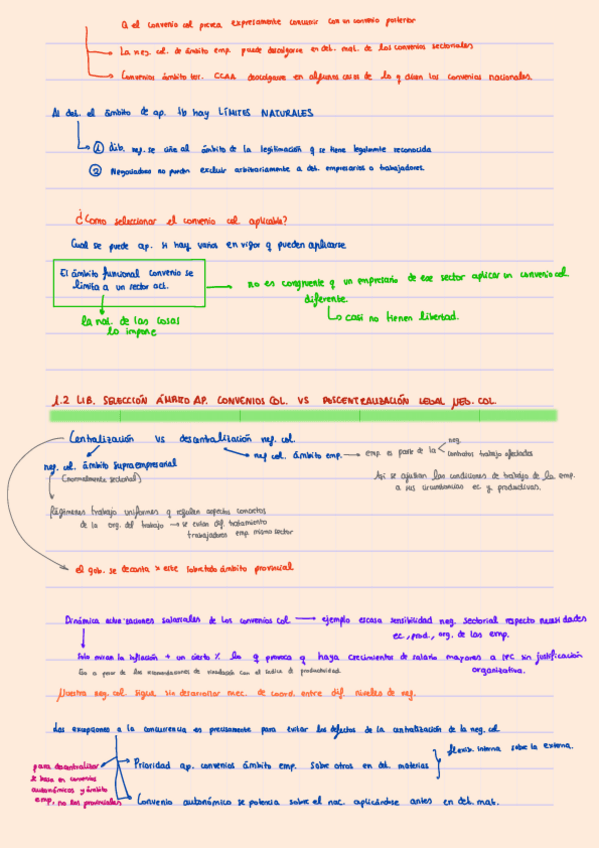 Q el convenio col prevea expresamente concurrir con un convenio posterior
La neg. col. de ámbito emp. puede descolgarse en det. mat. de los convenios sectoriales
Convenios ámbito terr. CCAA descolgarse en algunos casos de lo q dicen los convenios nacionales.
Al det. el ámbito de ap. tb hay LÍMITES NATURALES
① dcb. neg. se ciñe al ámbito de la legitimación q se tiene legalmente reconocida
② Negociadores no pueden excluir arbitrariamente a det. empresarios o trabajadores.
¿Como seleccionar el convenio col aplicable?
Cual se puede ap. si hay varios en vigor q pueden aplicarse
El ámbito funcional convenio se
limita a un sector act.
no es congruente q un empresario de ese sector aplicar un convenio col.
diferente.
Casi no tienen libertad.
la nat. de las cosas
lo impone
1.2 LIB. SELECCIÓN ÁMBITO AP. CONVENIOS COL. VS DESCENTRALIZACIÓN LEGAL NEG. COL.
Centralización vs descentralización neg. col.
neg. col. ámbito supraempresarial
(normalmente sectorial)
neg col. ámbito emp. emp es parte de la neg.
contratos trabajo afectados
Así se ajustan las condiciones de trabajo de la emp.
a sus circunstancias ec y productivas.
Régimenes trabajo uniformes q regulen aspectos concretos
de la org. del trabajo se evitan dif. tratamiento
trabajadores emp. mismo sector
el gob. se decanta x este sobretodo ámbito provincial
Dinámica actualizaciones salariales de los convenios col ejemplo escasa sensibilidad neg. sectorial respecto necesidades
ec, prod., org. de las emp.
Solo miran la inflación + un cierto % lo q provoca q haya crecimientos de salario mayores a IPC sin justificación
organizativa.
Eso a pesar de las recomendaciones de vincularlo con el índice de productividad.
Nuestra neg. col. sigue sin desarrollar mec. de coord. entre dif. niveles de neg.
Las excepciones a la concurrencia es precisamente para evitar los defectos de la centralización de la neg. col
Prioridad ap. convenios ámbito emp. sobre otros en det. materias
flexib. interna sobre la externa.
para descentralizar
se basa en convenios
autonómicos y ámbito
emp, no los provinciales
Convenio autonómico se potencia sobre el nac. aplicándose antes en det. mat.